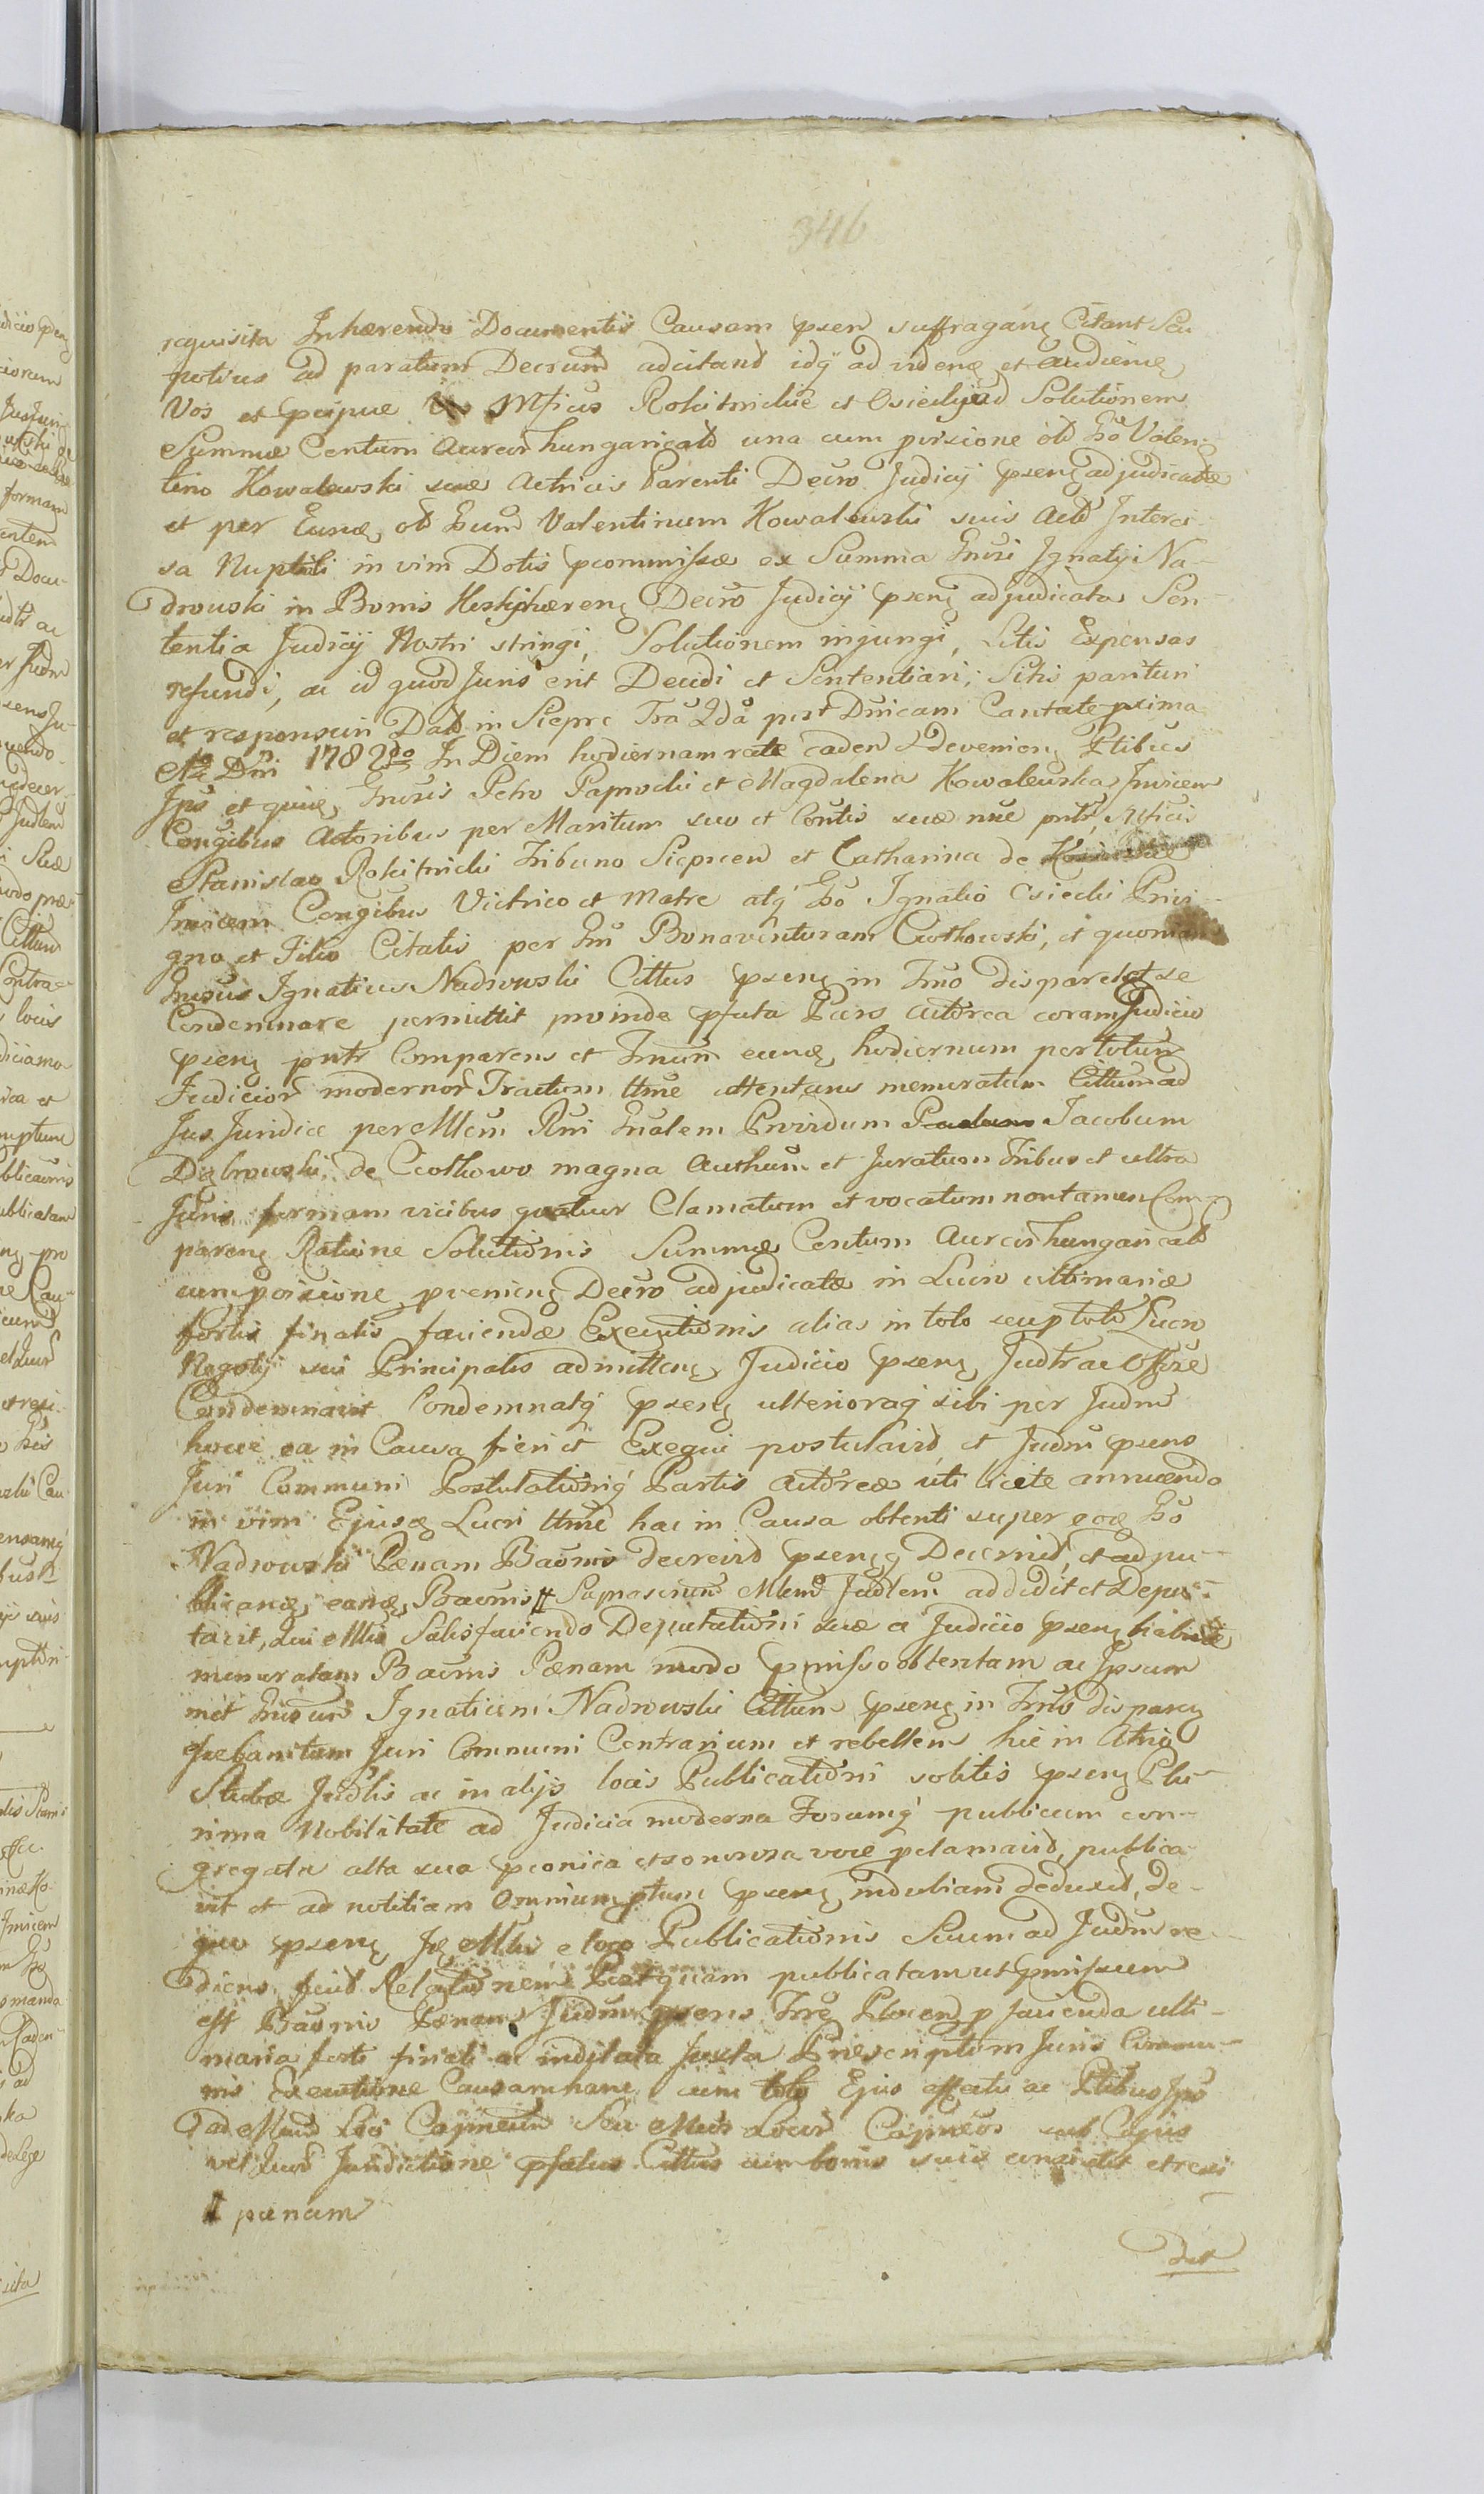 346
requisita Inhærendo Documentis Causam psen suffragang Citant Seu
potius ad paratum Decrum adcitand idq ad videne et audiene
Vos et pcipue Mficus Rokitnickie et Osiecki ad Solutionem
Summæ Centum Aureor hungaricald una cum provisione old Gso Valen-
tino Kowalewski suæ Actricis Parenti Decro Judicij pseng adjudicatæ
et per Eund old Gsum Valentinum Kowalewski suis Actd Interci-
sa Nuptiali in vim Dotis pcommissæ ex Summa Gnrsi Ignatij Na-
drowski in Bonis hæreng Decro Judicij pseng adjudicata Sen-
tentia Judicij Nostri stringi, Solutionem injungi, Litis Expensas
refundi, ac id quod Juris erit Decidi et Sententiari; Sitis parituri
et responsuri Datt in Sieprc Fra 2da post Dnicam Cantate proxima
Ao Dni 1782do In Diem hodiernam rate eaden deveniong Ptibus
Ips et quidem Gnrsis Petro Paprocki et Magdalena Kowalewska Invicem
Congibus Actoribus per Maritum suo et Contis suæ nne pntr, Mficis
Stanislao Rokitnicki Tribuno Sieprcen et Catharina de
Invicem Congibus Victrico et Matre atq Gso Ignatio Osiecki Privi-
gno et Filio Citatis per Gm Bonaventuram Ciotkowski, et quoniam
Gnrsus Ignatius Nadrowski Cittus pseng in Tmo disparet et se
Condemnare permittit proinde pfata Pars Actorea coram Judicio
pseng pntr Comparens et Tmum eund hodiernum per totum
Judicior modernor Tractum ttme attentans memoratum Cittum ad
Jus Juridice per Mlem Rni Gnalem Prvidum Jacobum
Dębrowski de Ciotkowo magna Authum et Juratum Tribus et ultra
Juris formam vicibus quatuor Clamatum et vocatum non tamen Com-
pareng Ratione Solutionis Summæ Centum Aureor hungaricald
cum provisione pveniong Decro adjudicatæ in Lucro ultimariæ
fortis finalis faciendæ Exequutionis alias in toto seu ptoto Lucro
Negotij sui Principalis admitteng Judicio pseng Judtr ac Offose
Condemnavit Condemnatq pseng ulterioraq sibi per Judm
hocce ea in Causa fieri et Exequi postulavid, et Judm psens
Juri Communi Postulationiq Partis Actoreæ uti licite annuendo
in vim Ejusd Lucri ttme hac in Causa obtenti super eod Gso
Nadrowski Pænam Bannis decrevid psengq Decernid, et ad pu-
blicand eand Bannis ⌗ Suprascrum Mlem Judlem addidit et Depu-
tavit, Qui Mlis Satisfaciendo Deputationi suæ a Judicio pseng habitæ
memoratam Bannis Pænam modo pmisso obtentam ac Ipsum
met Gnrsum Ignatium Nadrowski Cittum pseng in Tmo dispareng
Juri Communi Contrarium et rebellem hic in Atrio
Stubæ Judlis ac in alijs locis Publicationi solitis pseng Plu-
rima Nobilitate ad Judicia moderna Forumq publicum con-
gregata alta sua pconica et sonorosa voce pclamavid, publica-
vit et ad notitiam Omnium ptum pseng indubiam deduxid, de
quo pseng Id Mlis e loco Publicationis Suum ad Judm re-
diens fecid Relationem Postquam publicatam ut pmissum
est Bannis Pænam Judm psens Tre Ploceng p facienda ulti-
maria forti finali ac indilata Juxta Præscriptum Juris Commu-
nis Exequutione Causam hanc cum toto Ejus effectu ac Ptibus Ips
ad Mum Loci Capneum Seu Mcos Locor Capneos sub Cujus
vel Quor Jurisdictione pfatus Cittus cum bonis suis consistit et resi
⌗ pænam
det